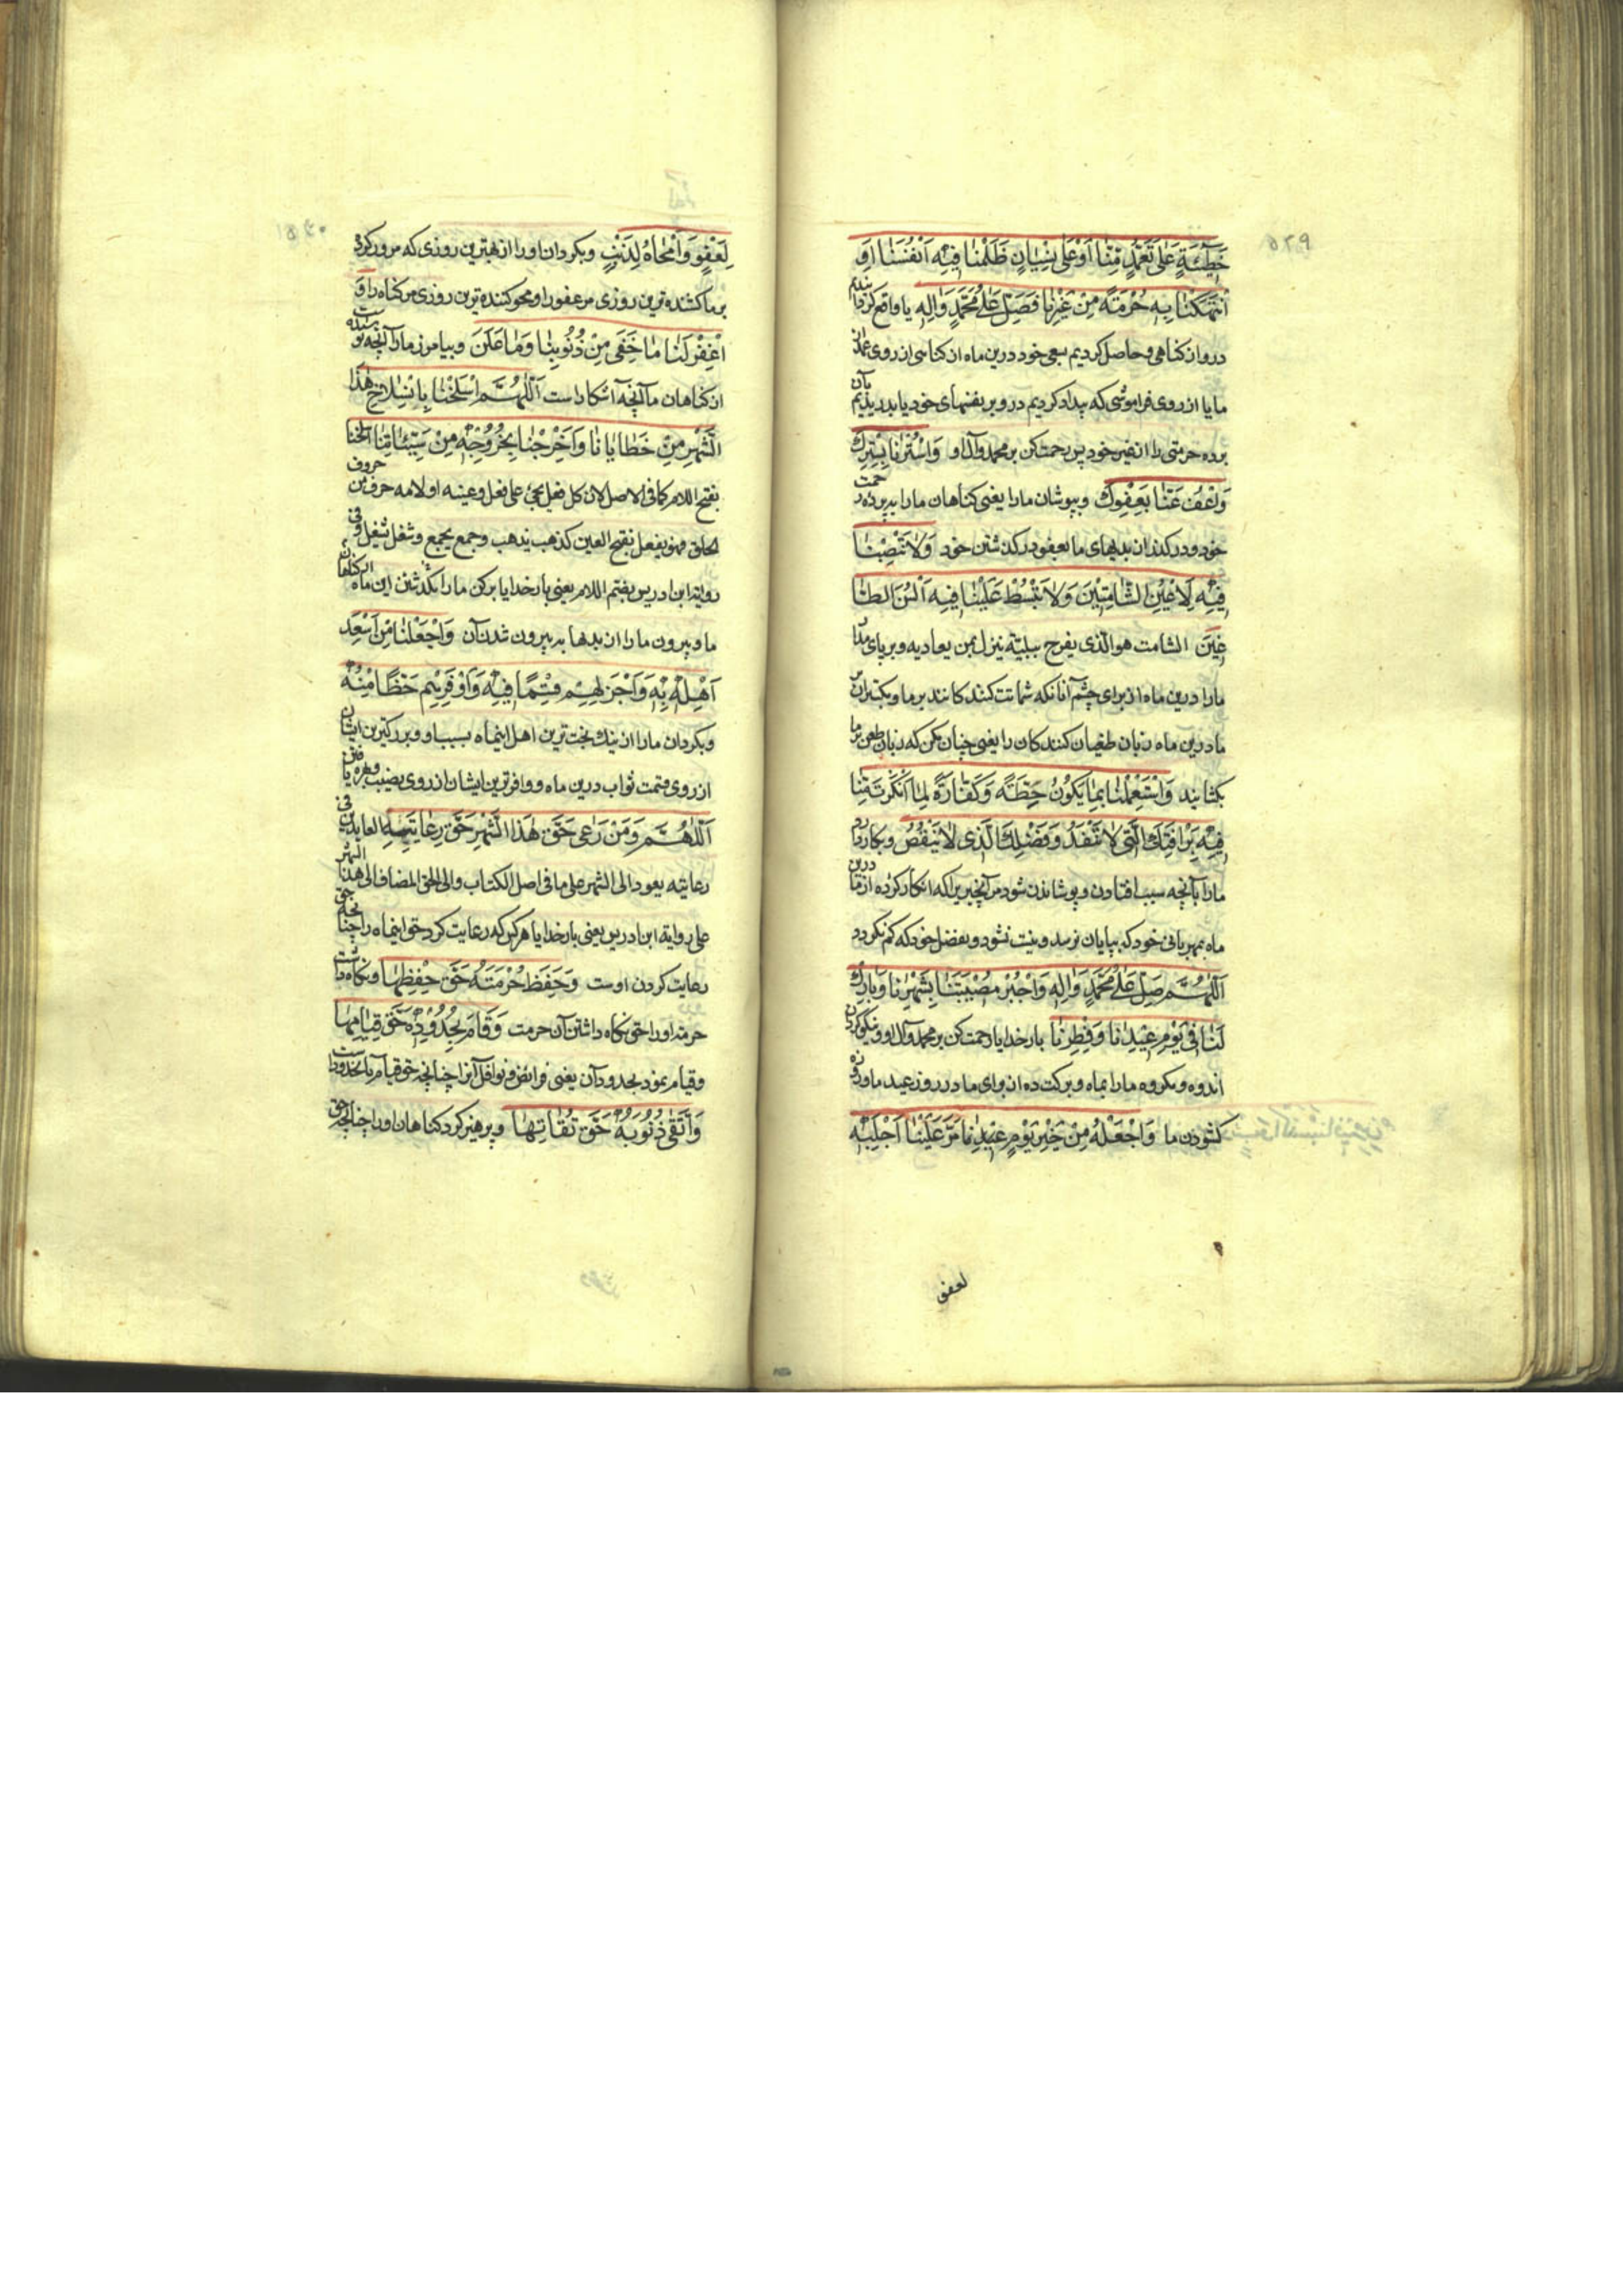 ۵۲۹
خَطِيئَةٍ عَلى تَعَمُّدٍ مِنَّا أَوْ عَلى نِسْيانٍ ظَلَمْنا فِيهِ أَنْفُسَنَا أَوِ
انْتَهَكْنا بِهِ حُرْمَةً مِنْ غَيْرِنا فَصَلِّ عَلى مُحَمَّدٍ وَالِهِ یا واقع کردانیدیم
درو از کناهی و حاصل کردیم بسعی خود درین ماه از کناسی از روی
ما یا از روی فراموشی که بیداد کردیم درو بر نفسهای خود یا بدریدیم بآن
پرده حرمتی را از غیر خود پس رحمت کن بر محمد و آل او وَاسْتُرْنا بِسِتْرِكَ
وَاعْفُ عَنَّا بِعَفْوِكَ وبپوشان ما را یعنی کناهان ما را بپرده رحمت
خود و درکذر از بدیهای ما بعفو و درکذشتن خود وَلا تَنْصِبْنا
فِيهِ لِأَعْيُنِ الشَّامِتِينَ وَلا تَبْسُطْ عَلَيْنا فِيهِ أَلْسُنَ الطَّا
غِينَ الشامت هو الّذی یفرح ببلیّة ینزل بمن یعادیه وبر پای مکن
ما را درین ماه از برای چشم آنانکه شماتت کنندکانند بر ما و مکستران
ما درین ماه زبان طغیان کنندکان را یعنی چنان مکن که زبان طعن بر ما
بکشایند وَاسْتَعْمِلْنا بِما يَكُونُ حِطَّةً وَكَفَّارَةً لِما أَنْكَرْتَ مِنَّا
فِيهِ بِرَأْفَتِكَ الَّتي لا تَنْفَدُ وَفَضْلِكَ الَّذي لا يَنْقُصُ وبکار دار
ما را بآنچه سبب افتادن و پوشاندن شود مر آنچیزیرا که انکار کرده از ما درین
ماه بمهربانی خود که بپایان نرسد و نیست نشود و بفضل خود که کم نکردد
اَللّهُمَّ صَلِّ عَلى مُحَمَّدٍ وَالِهِ وَاجْبُرْ مُصِيبَتَنا بِشَهْرِنا وَبارِكْ
لَنا فِي يَوْمِ عِيدِنا وَفِطْرِنا بار خدایا رحمت کن بر محمد و آل او و نیکو کردان
اندوه و مکروه ما را بماه و برکت ده از برای ما در روز عید ما و روزه
کشودن ما وَاجْعَلْهُ مِنْ خَيْرِ يَوْمِ عِيدٍ مَرَّ عَلَيْنا أَجْلَبِهِ
لعفو
۵۳۰
لِعَفْوٍ وَأَمْحاهُ لِذَنْبٍ وبکردان او را از بهترین روزی که مرور کرده
بر ما کشنده ترین روزی مر عفو را و محو کننده ترین روزی مر کناه را وَ
اغْفِرْ لَنا ما خَفِيَ مِنْ ذُنُوبِنا وَما عَلَنَ وبیامرز ما را آنچه پوشیده
از کناهان ما آنچه آشکار است اَللّهُمَّ اسْلَخْنا بِانْسِلاخِ هٰذَا
الشَّهْرِ مِنْ خَطايانا وَأَخْرِجْنا بِخُرُوجِهِ مِنْ سَيِّئاتِنا اسلخنا
بفتح اللام کما فی الاصل لان کل فعل یجئ علی فعل وعینه او لامه حرف من حروف
الحلق فهو یفعل بفتح العین کذهب یذهب وجمع یجمع وشغل یشغل وفی
روایة ابن ادریس بضم اللام یعنی بار خدایا برکن ما را بکذشتن این ماه از کناهان
ما و بیرون ما را از بدیها به بیرون شدن آن وَاجْعَلْنا مِنْ أَسْعَدِ
أَهْلِهِ بِهِ وَأَجْزَلِهِمْ قِسْمًا فِيهِ وَأَوْفَرِهِمْ حَظًّا مِنْهُ
وبکردان ما را از نیک بخت ترین اهل اینماه بسبب او و بزرکترین ایشان
از روی قسمت ثواب درین ماه و وافرترین ایشان از روی نصیب و بهره
اَللّهُمَّ وَمَنْ رَعى حَقَّ هٰذَا الشَّهْرِ حَقَّ رِعايَتِهِ العاید فی
رعایته یعود الی الشهر علی ما فی اصل الکتاب والی الحق المضاف الی هذا الشهر
علی روایة ابن ادریس یعنی بار خدایا هر کس که رعایت کرد حق اینماه را چنانچه حق
رعایت کردن اوست وَحَفِظَ حُرْمَتَهُ حَقَّ حِفْظِها ونکاه داشت
حرمت او را حق نکاه داشتن آن حرمت وَقامَ بِحُدُودِهِ حَقَّ قِيامِها
وقیام نمود بحدود آن یعنی فرائض و نوافل آنرا چنانچه حق قیام بآنحدود است
وَاتَّقى ذُنُوبَهُ حَقَّ تُقاتِها وپرهیز کرد کناهان او را چنانچه حق